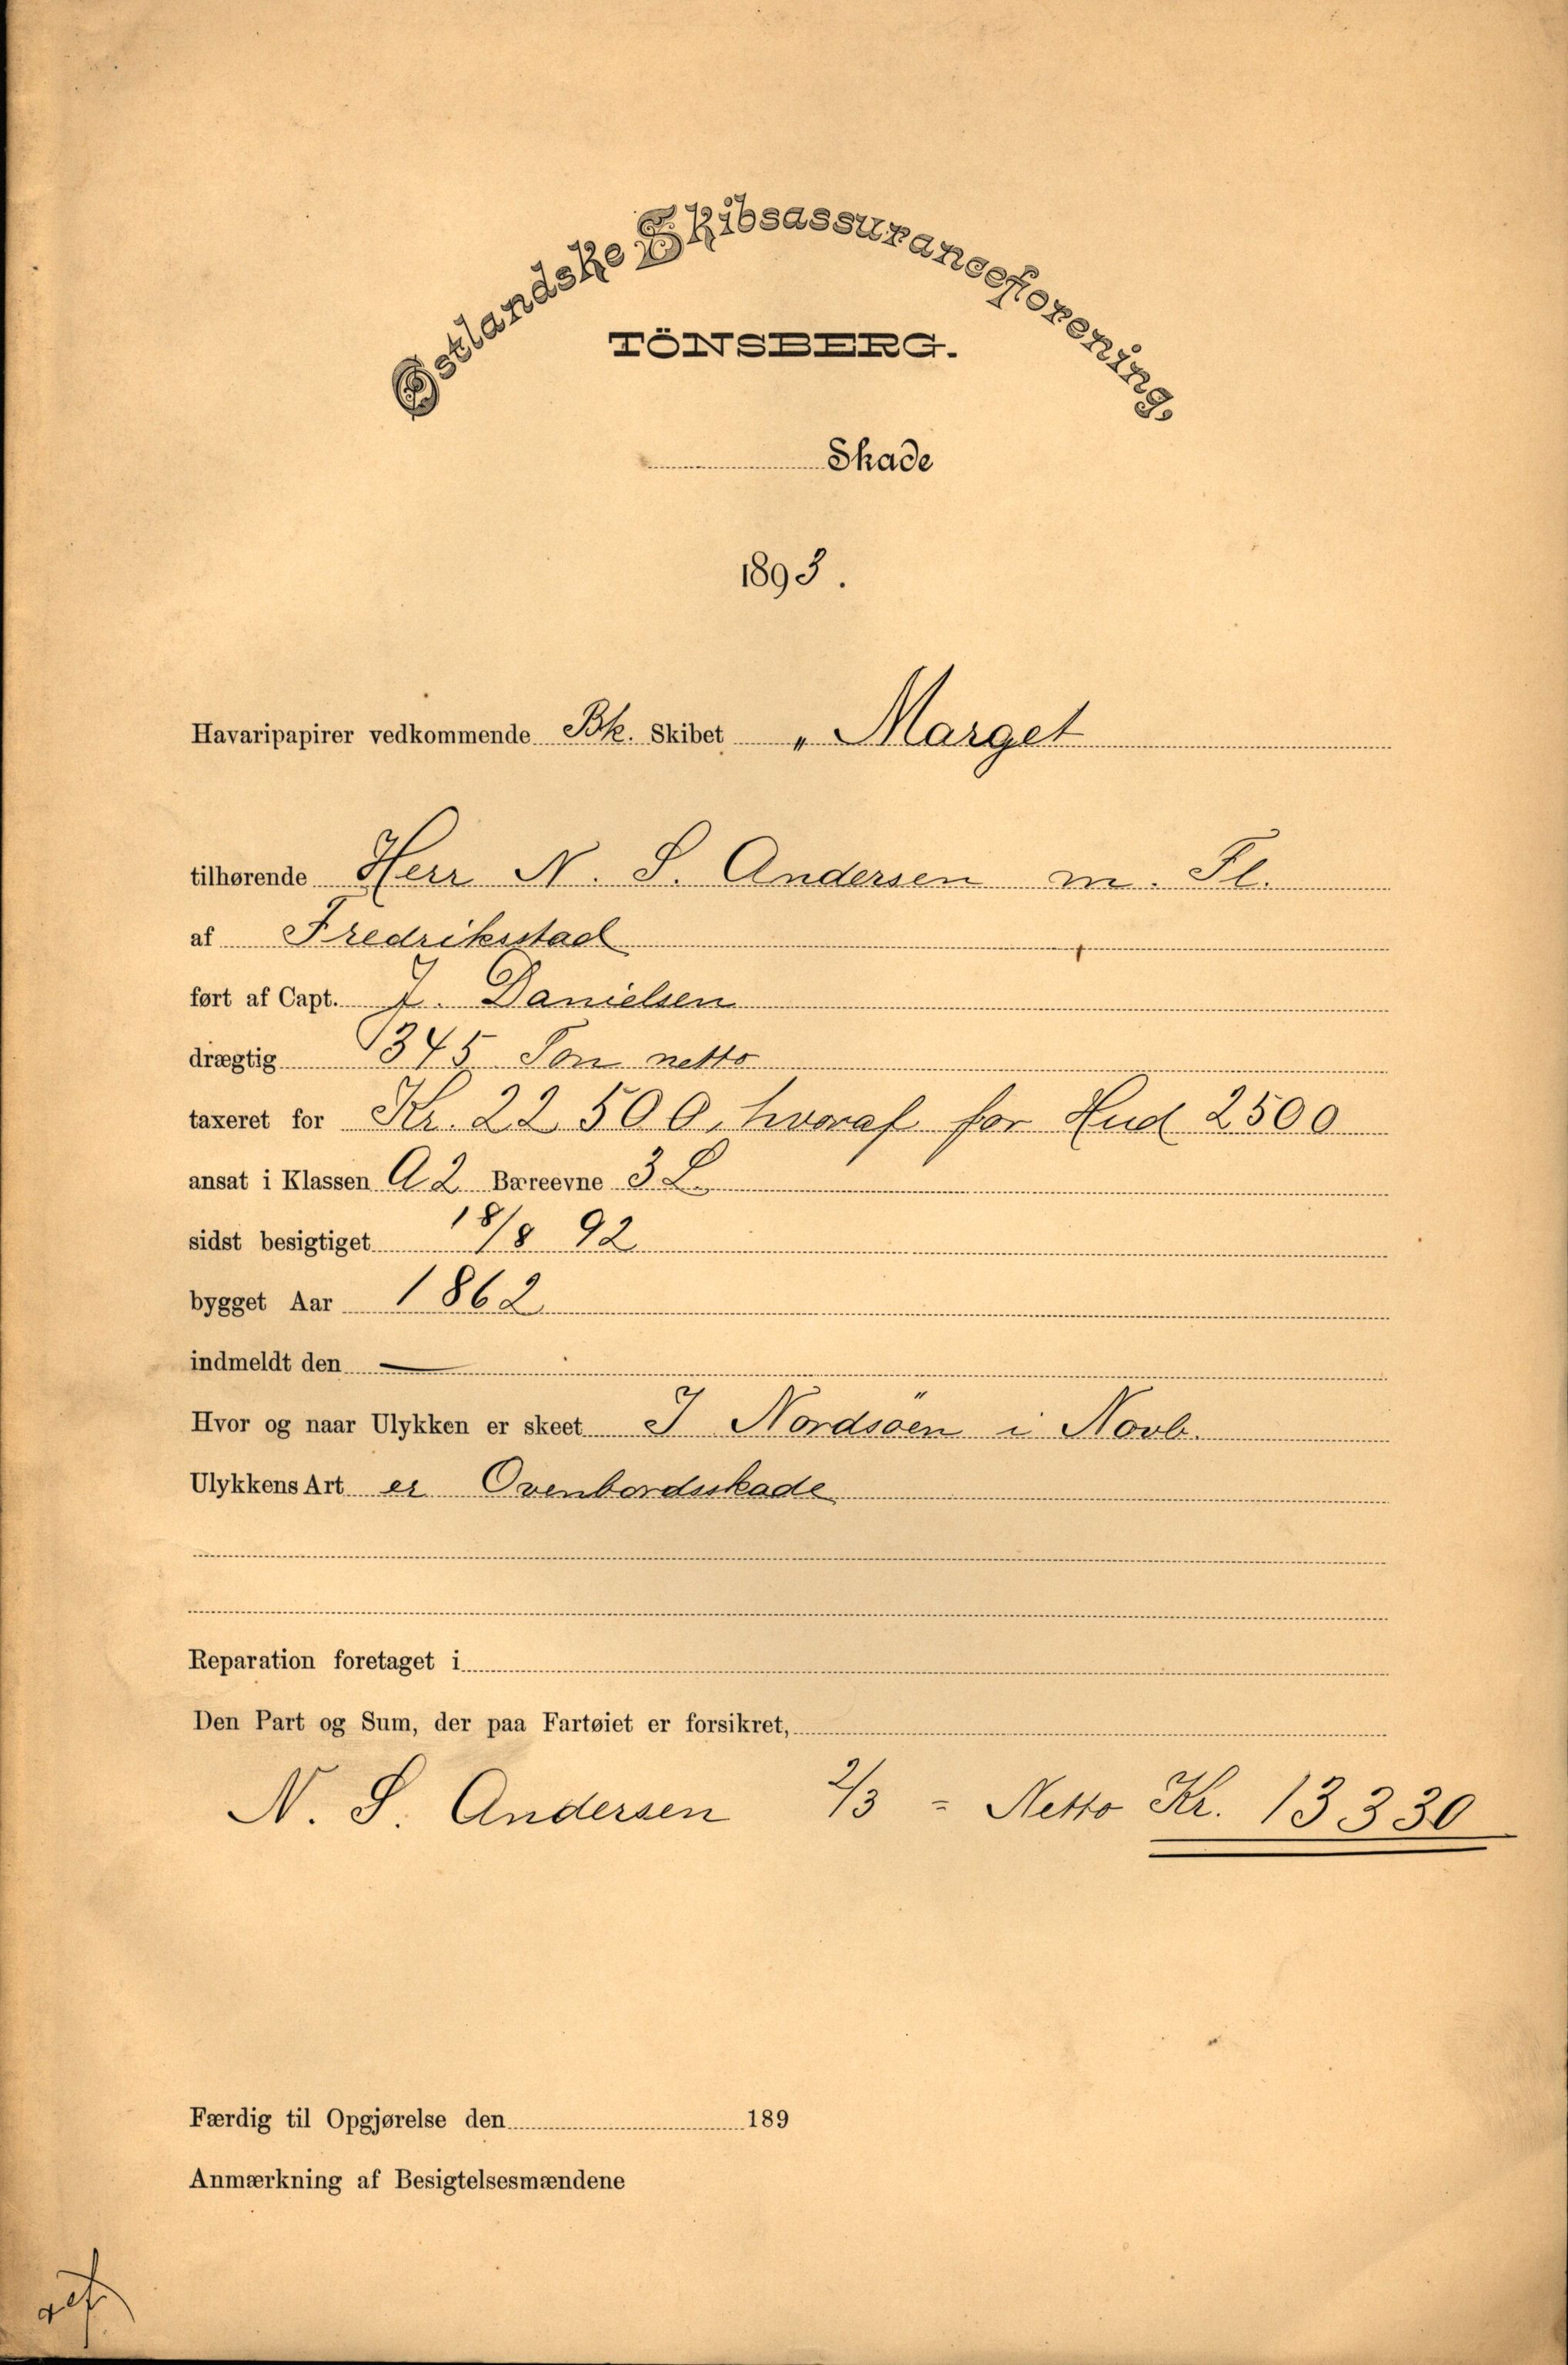 Østlandske Skibsassuranceforening,
TÖNSBERG.
Skade
1893.
Havaripapirer vedkommende Bk. Skibet „ Marget
tilhørende Herr N. S. Andersen m. Fl.
af Fredriksstad
ført af Capt. J. Danielsen
drægtig 345 Ton netto
taxeret for Kr. 22 500, hvoraf for Hud 2500
ansat i Klassen A 2 Bæreevne 3 L
sidst besigtiget 18/8 92
bygget Aar 1862
indmeldt den —
Hvor og naar Ulykken er skeet I Nordsöen i Novb.
Ulykkens Art er Ovenbordsskade
Reparation foretaget i
Den Part og Sum, der paa Fartøiet er forsikret,
N. S. Andersen 2/3 = Netto Kr. 13 330
Færdig til Opgjørelse den 189
Anmærkning af Besigtelsesmændene